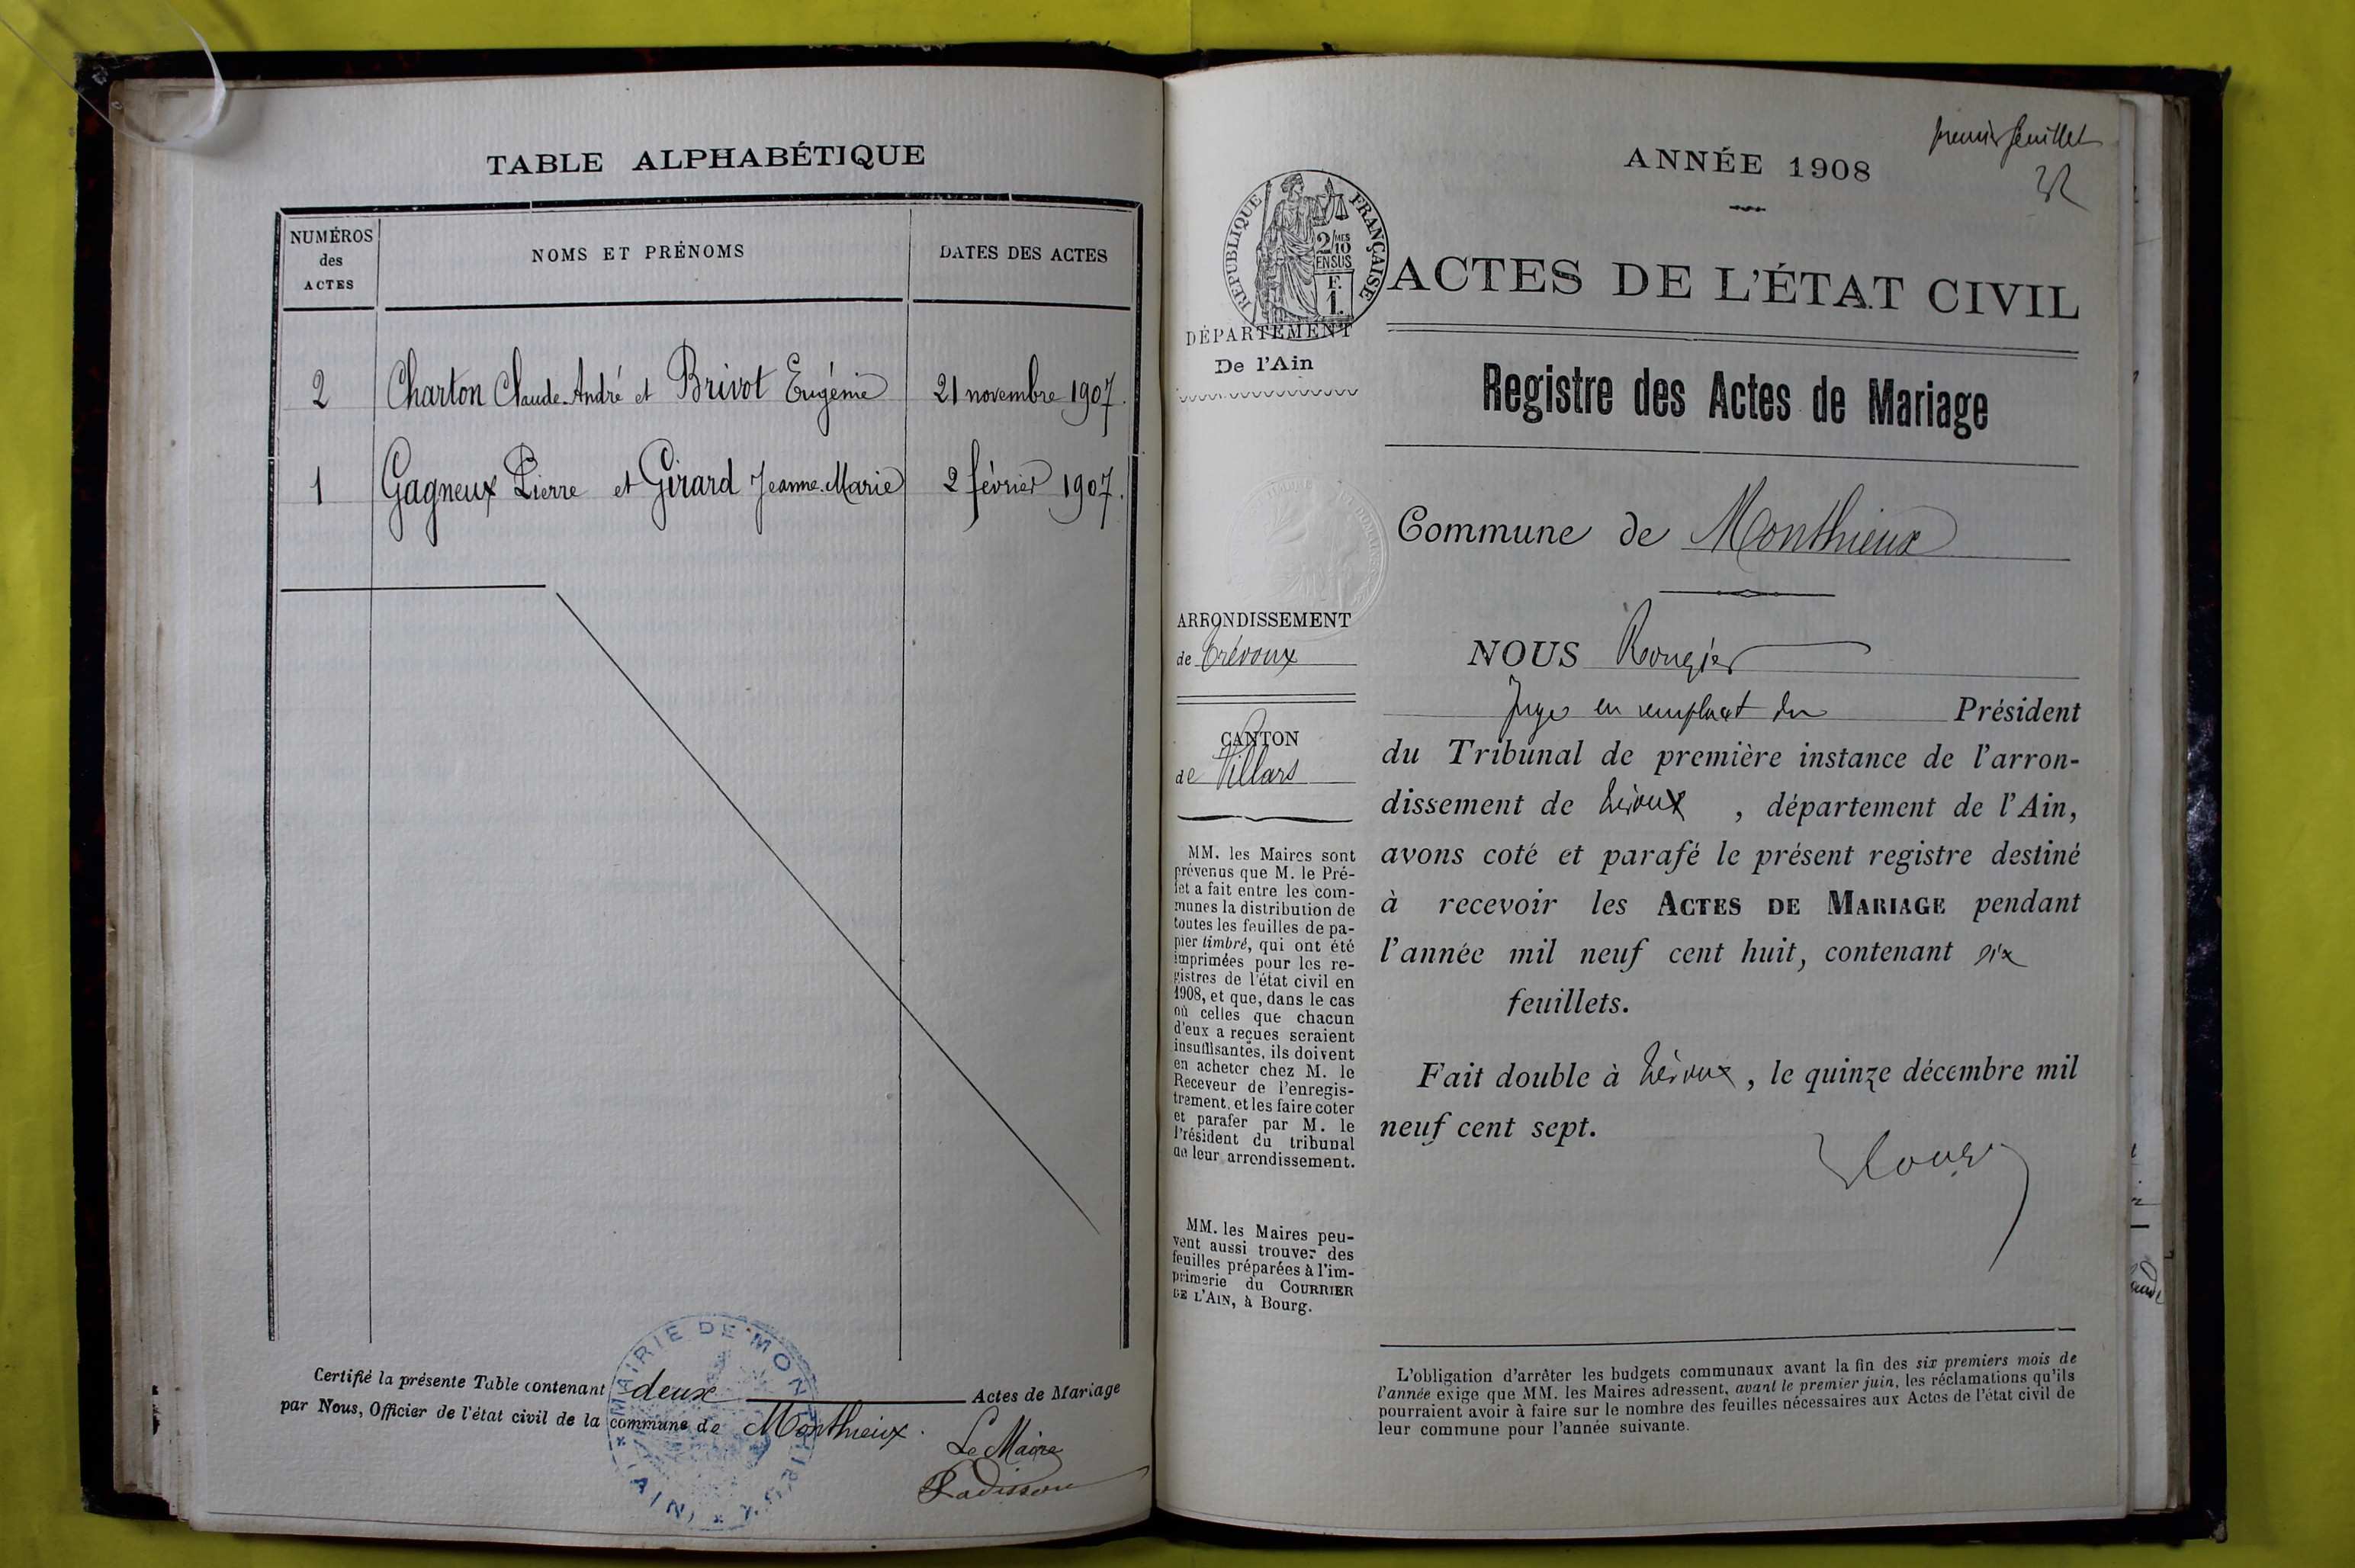 TABLE ALPHABÉTIQUE
NUMÉROS
des
ACTES
NOMS ET PRÉNOMS
DATES DES ACTES
2 Charton Claude-André et Brivot Eugénie 21 novembre 1907.
1 Gagneux Pierre et Girard Jeanne-Marie 2 février 1907.
Certifié la présente Table contenant deux Actes de Mariage
par Nous, Officier de l'état civil de la commune de Monthieux.
Le Maire
MAIRIE DE MONTHIEUX
(AIN)
premier feuillet
ANNÉE 1908
RÉPUBLIQUE FRANÇAISE
2/10MES
EN SUS
F.
1.
ACTES DE L'ÉTAT CIVIL
DÉPARTEMENT
De l'Ain
Registre des Actes de Mariage
Commune de Monthieux
ARRONDISSEMENT
de Trévoux
CANTON
de Villars
MM. les Maires sont
prévenus que M. le Pré-
fet a fait entre les com-
munes la distribution de
toutes les feuilles de pa-
pier timbré, qui ont été
imprimées pour les re-
gistres de l'état civil en
1908, et que, dans le cas
où celles que chacun
d'eux a reçues seraient
insuffisantes, ils doivent
en acheter chez M. le
Receveur de l'enregis-
trement, et les faire coter
et parafer par M. le
Président du tribunal
de leur arrondissement.
MM. les Maires peu-
vent aussi trouver des
feuilles préparées à l'im-
primerie du COURRIER
DE L'AIN, à Bourg.
NOUS Rougier
Juge en remplact du Président
du Tribunal de première instance de l'arron-
dissement de Trévoux, département de l'Ain,
avons coté et parafé le présent registre destiné
à recevoir les ACTES DE MARIAGE pendant
l'année mil neuf cent huit, contenant six
feuillets.
Fait double à Trévoux, le quinze décembre mil
neuf cent sept.
L'obligation d'arrêter les budgets communaux avant la fin des six premiers mois de
l'année exige que MM. les Maires adressent, avant le premier juin, les réclamations qu'ils
pourraient avoir à faire sur le nombre des feuilles nécessaires aux Actes de l'état civil de
leur commune pour l'année suivante.